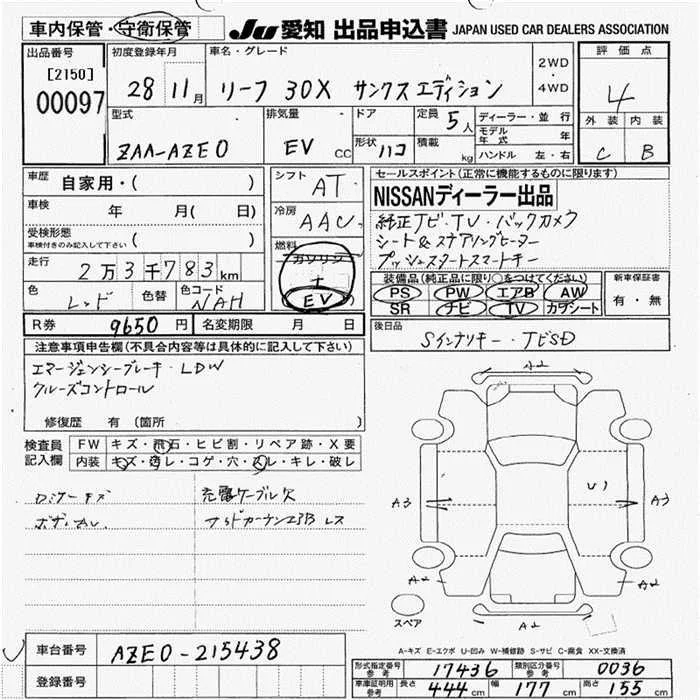 車内保管・守衛保管
JU 愛知 出品申込書 JAPAN USED CAR DEALERS ASSOCIATION
出品番号
[2150]
00097
初度登録年月
28 11月
車名・グレード
リーフ 30X サンクスエディション
2WD
・
4WD
評価点
4
外装 内装
C B
型式
ZAA-AZE0
排気量
EV CC
ドア
形状 ハコ
定員 5人
積載 kg
ディーラー・並行
モデル年式 年
ハンドル 左・右
車歴 自家用・( )
車検 年 月( 日)
受検形態
車検付きのみ記入して下さい ( )
走行 2万3千783km
色 レッド 色替
色コード NAH
シフト AT
冷房 AAC
燃料
ガソリン
+
EV
セールスポイント(正常に機能するものに限ります)
NISSANディーラー出品
純正ナビ・TV・バックカメラ
シート&ステアリングヒーター
プッシュスタートスマートキー
装備品(純正品に限り○をつけてください)
PS PW エアB AW
SR ナビ TV カワシート
新車保証書
有・無
R券 9650円 名変期限 月 日
後日品
注意事項申告欄(不具合内容等は具体的に記入して下さい)
エマージェンシーブレーキ・LDW
クルーズコントロール
修復歴 有 (箇所 )
検査員記入欄
FW キズ・飛石・ヒビ割・リペア跡・X要
内装 キズ・汚レ・コゲ・穴・スレ・キレ・破レ
充電ケーブル欠
A2
A3
U1
A3
A2
A2
A2
スペア
A-キズ E-エクボ U-凹み W-補修跡 S-サビ C-腐食 XX-交換済
車台番号 AZE0-215438
登録番号
形式指定番号 参考 17436 類別区分番号 参考 0036
車庫証明用 参考 長さ 444cm 幅 177cm 高さ 155cm